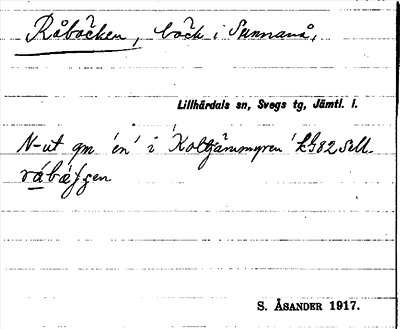 Råbäcken, bäck i Sunnanå,
Lillhärdals sn, Svegs tg, Jämtl. l.
N-ut gm 'én' i 'Koltjärnmyren'
rábä
S. ÅSANDER 1917.